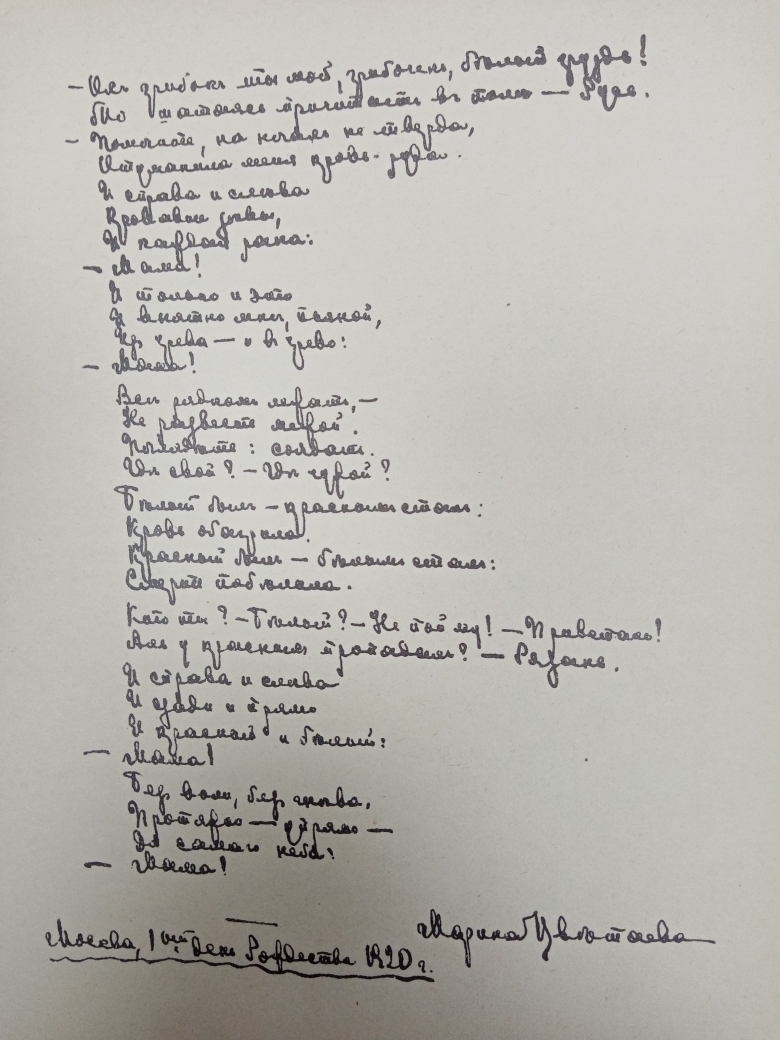 — Охъ грибокъ ты мой, грибочекъ, бѣлый груздь!
То шатаясь причитаетъ въ полѣ — Русь.
— Помогите, на ногахъ не тверда,
Отуманила меня кровь-руда.
И справа и слѣва
Кровавые зѣвы,
И каждая рана:
— Мама!
И только и это
И внятно мнѣ, пьяной,
Изъ чрева — и въ чрево:
— Мама!
Всѣ рядкомъ лежатъ, —
Не развесть межой.
Поглядѣть: солдатъ.
Гдѣ свой? — Гдѣ чужой?
Бѣлый былъ — краснымъ сталъ:
Кровь обагрила.
Красный былъ — бѣлымъ сталъ:
Смерть побѣлила.
Кто ты? — Бѣлый? — Не пойму! — Привстань!
Аль у красныхъ пропадалъ? — Рязань.
И справа и слѣва
И сзади и прямо
И красный и бѣлый:
— Мама!
Безъ воли, безъ гнѣва,
Протяжно — упрямо —
До самаго неба:
— Мама!
Марина Цвѣтаева
Москва, 1ый день Рождества 1920 г.